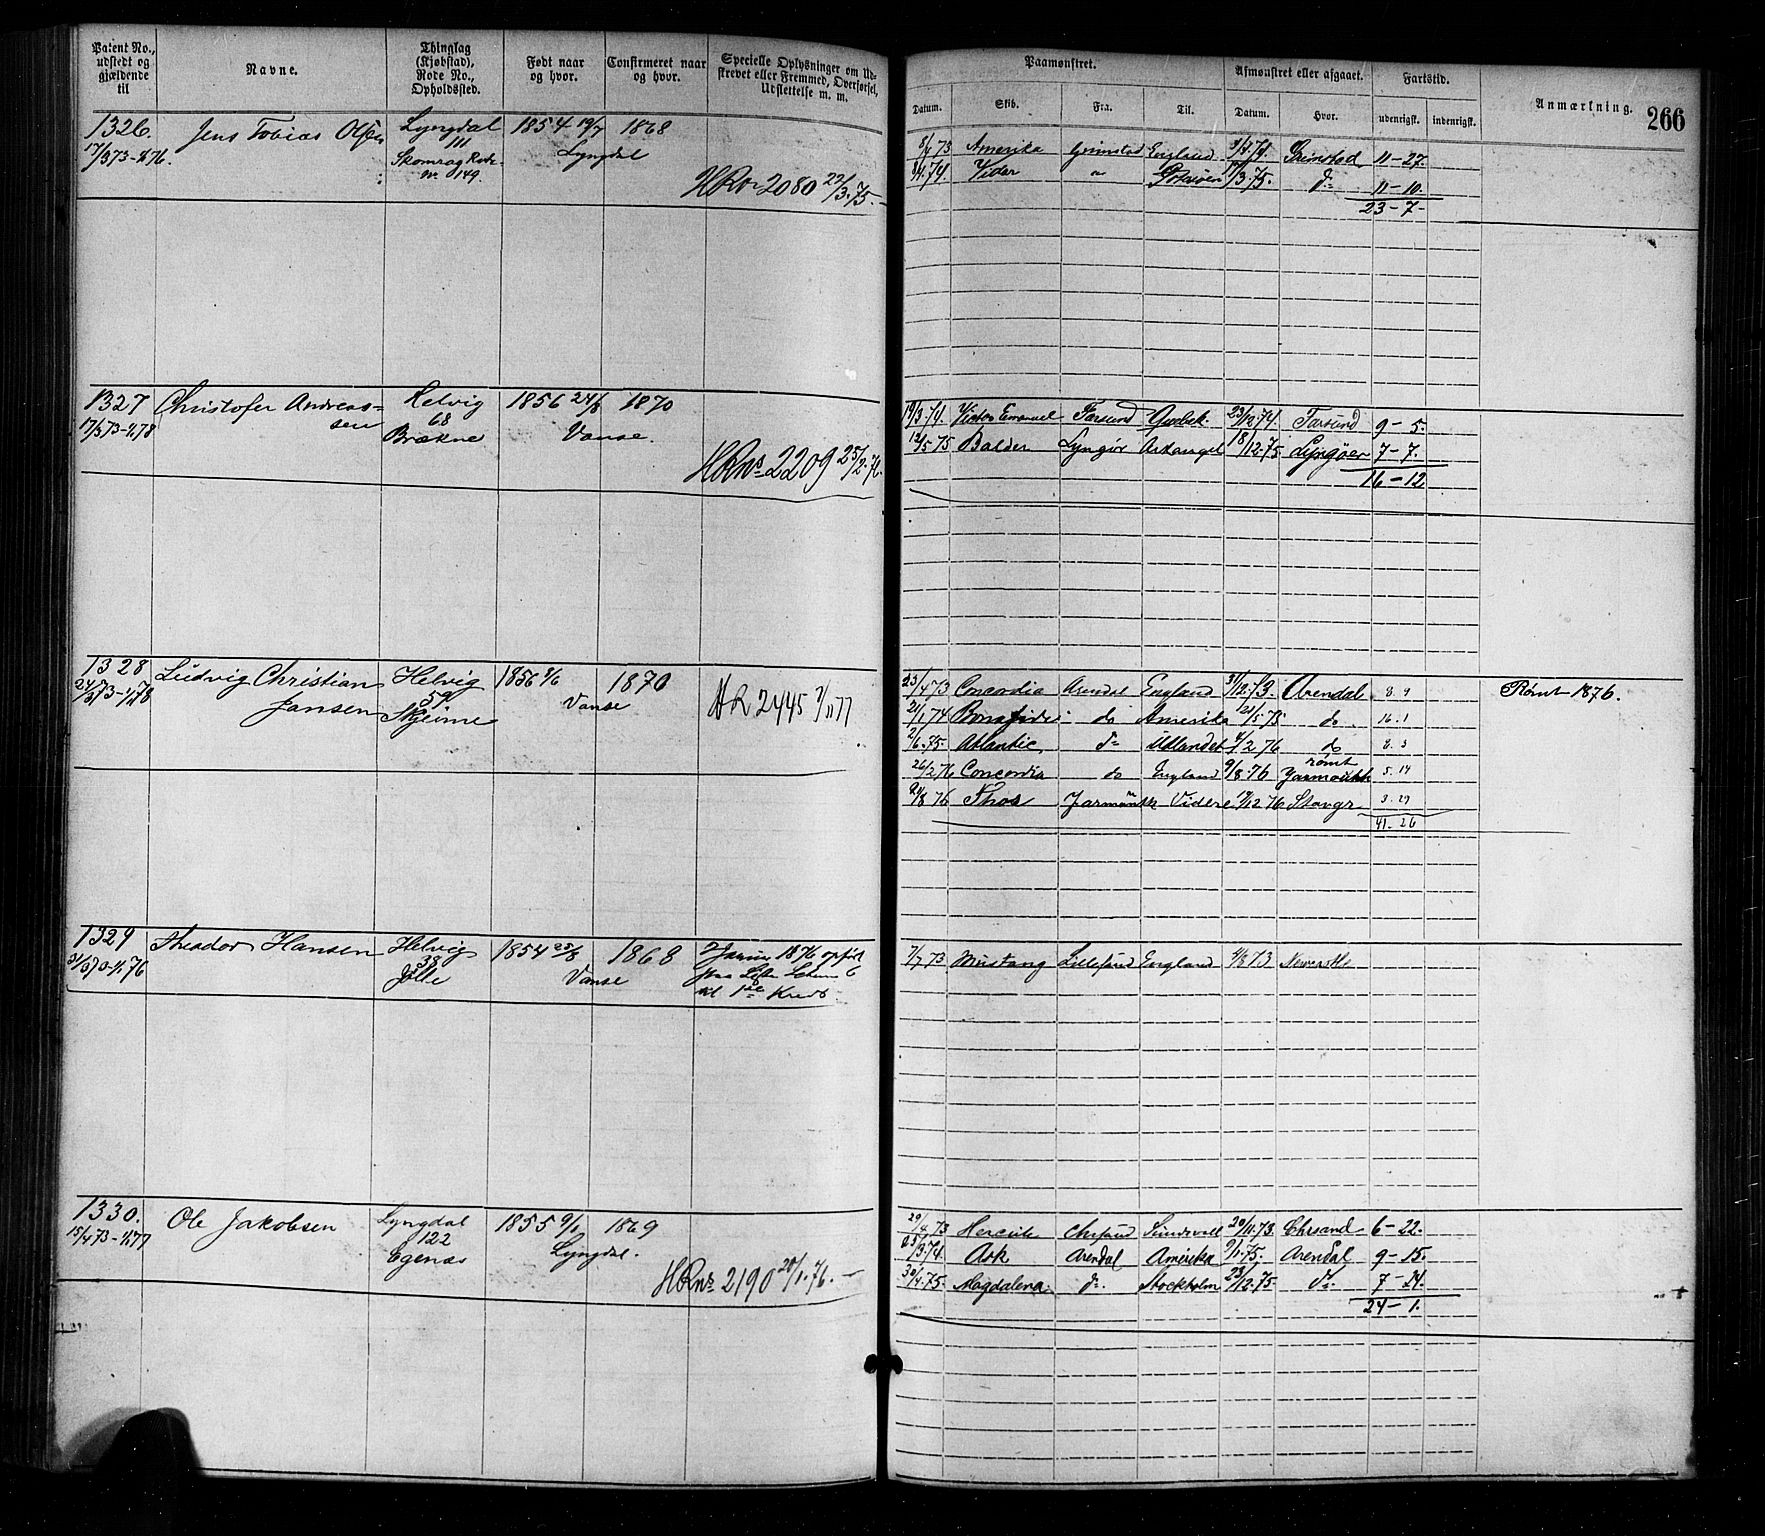 Patent No., udstedt og gjældende til
Navne.
Thinglag (Kjøbstad), Rode No., Opholdssted.
Født naar og hvor.
Confirmeret naar og hvor.
Specielle Oplysninger om Udskrevet eller Fremmed, Overførsel, Udslettelse m. m.
Paamønstret.
Afmønstret eller afgaaet.
Fartstid.
Anmærkning.
266
Datum. Skib. Fra. Til. Datum. Hvor. udenrigsk. indenrigsk.
1326. Jens Tobias Olsen Lyngdal 1854 19/7 1868
17/3 73-1/4 76. 111 Lyngdal
Skomrag Rode
nr. 149.
HR nr 2080 29/3.75.-
8/4 73 Amerika Grimstad England Grimstad 11-27.
Vidar " 17/3.75. do 11-10.
23-7.
1327 Christofer Andreas= Helvig 1856 24/8 1870
17/3 73-1/4 78 sen 68 Vanse.
Brækne
HR ns 2209 25/2.76.
19/3.74. Victor Emanuel Farsund Qvebek. 23/12.74. Farsund 9-5.
12/5 75 Balder Lyngør Arkangel 18/12.75. Lyngøer 7-7.
16-12
1328 Ludvig Christian Helvig 1856 9/6 1870
24/3 73-1/4 78 Jansen 59 Vanse
Skjeime
HR 2445 7/11 77
23/4 73 Concordia Arendal England 31/12.73. Arendal 8.9 Rømt 1876.
21/1 74 Bonafides do Amerika 21/5 75 do 16.1
2/6.75. Atlantic do Udlandet 4/2 76 do 8.3
26/2 76 Concordia do England 9/8.76 rømt Yarmouth 5.14
20/8 76 Thor Jarmouth Videre 19/12 76 Stavgr 3.29
41.26
1329 Theodor Hansen Helvig 1854 25/8 1868
31/3 70-1/4 76 38 Vanse
Jølle
7 Januar 1876 opført
til 1ste Kreds
7/7 73 Mustang Lillesand England 4/8 73 Newcastle
1330. Ole Jakobsen Lyngdal 1855 9/1 1869
15/4 73-1/4 77 122 Lyngdal.
Egenæs
HR ns 2190 20/1.76.-
29/4 73 Hercules Chrsand Sundsvall 20/11.73. Chrsand 6-22.
25/3.74. Ark Arendal Amerika 9/1.75. Arendal 9-15.
30/4.75. Magdalena do. Stockholm 23/12.75 do 7-24.
24-1.